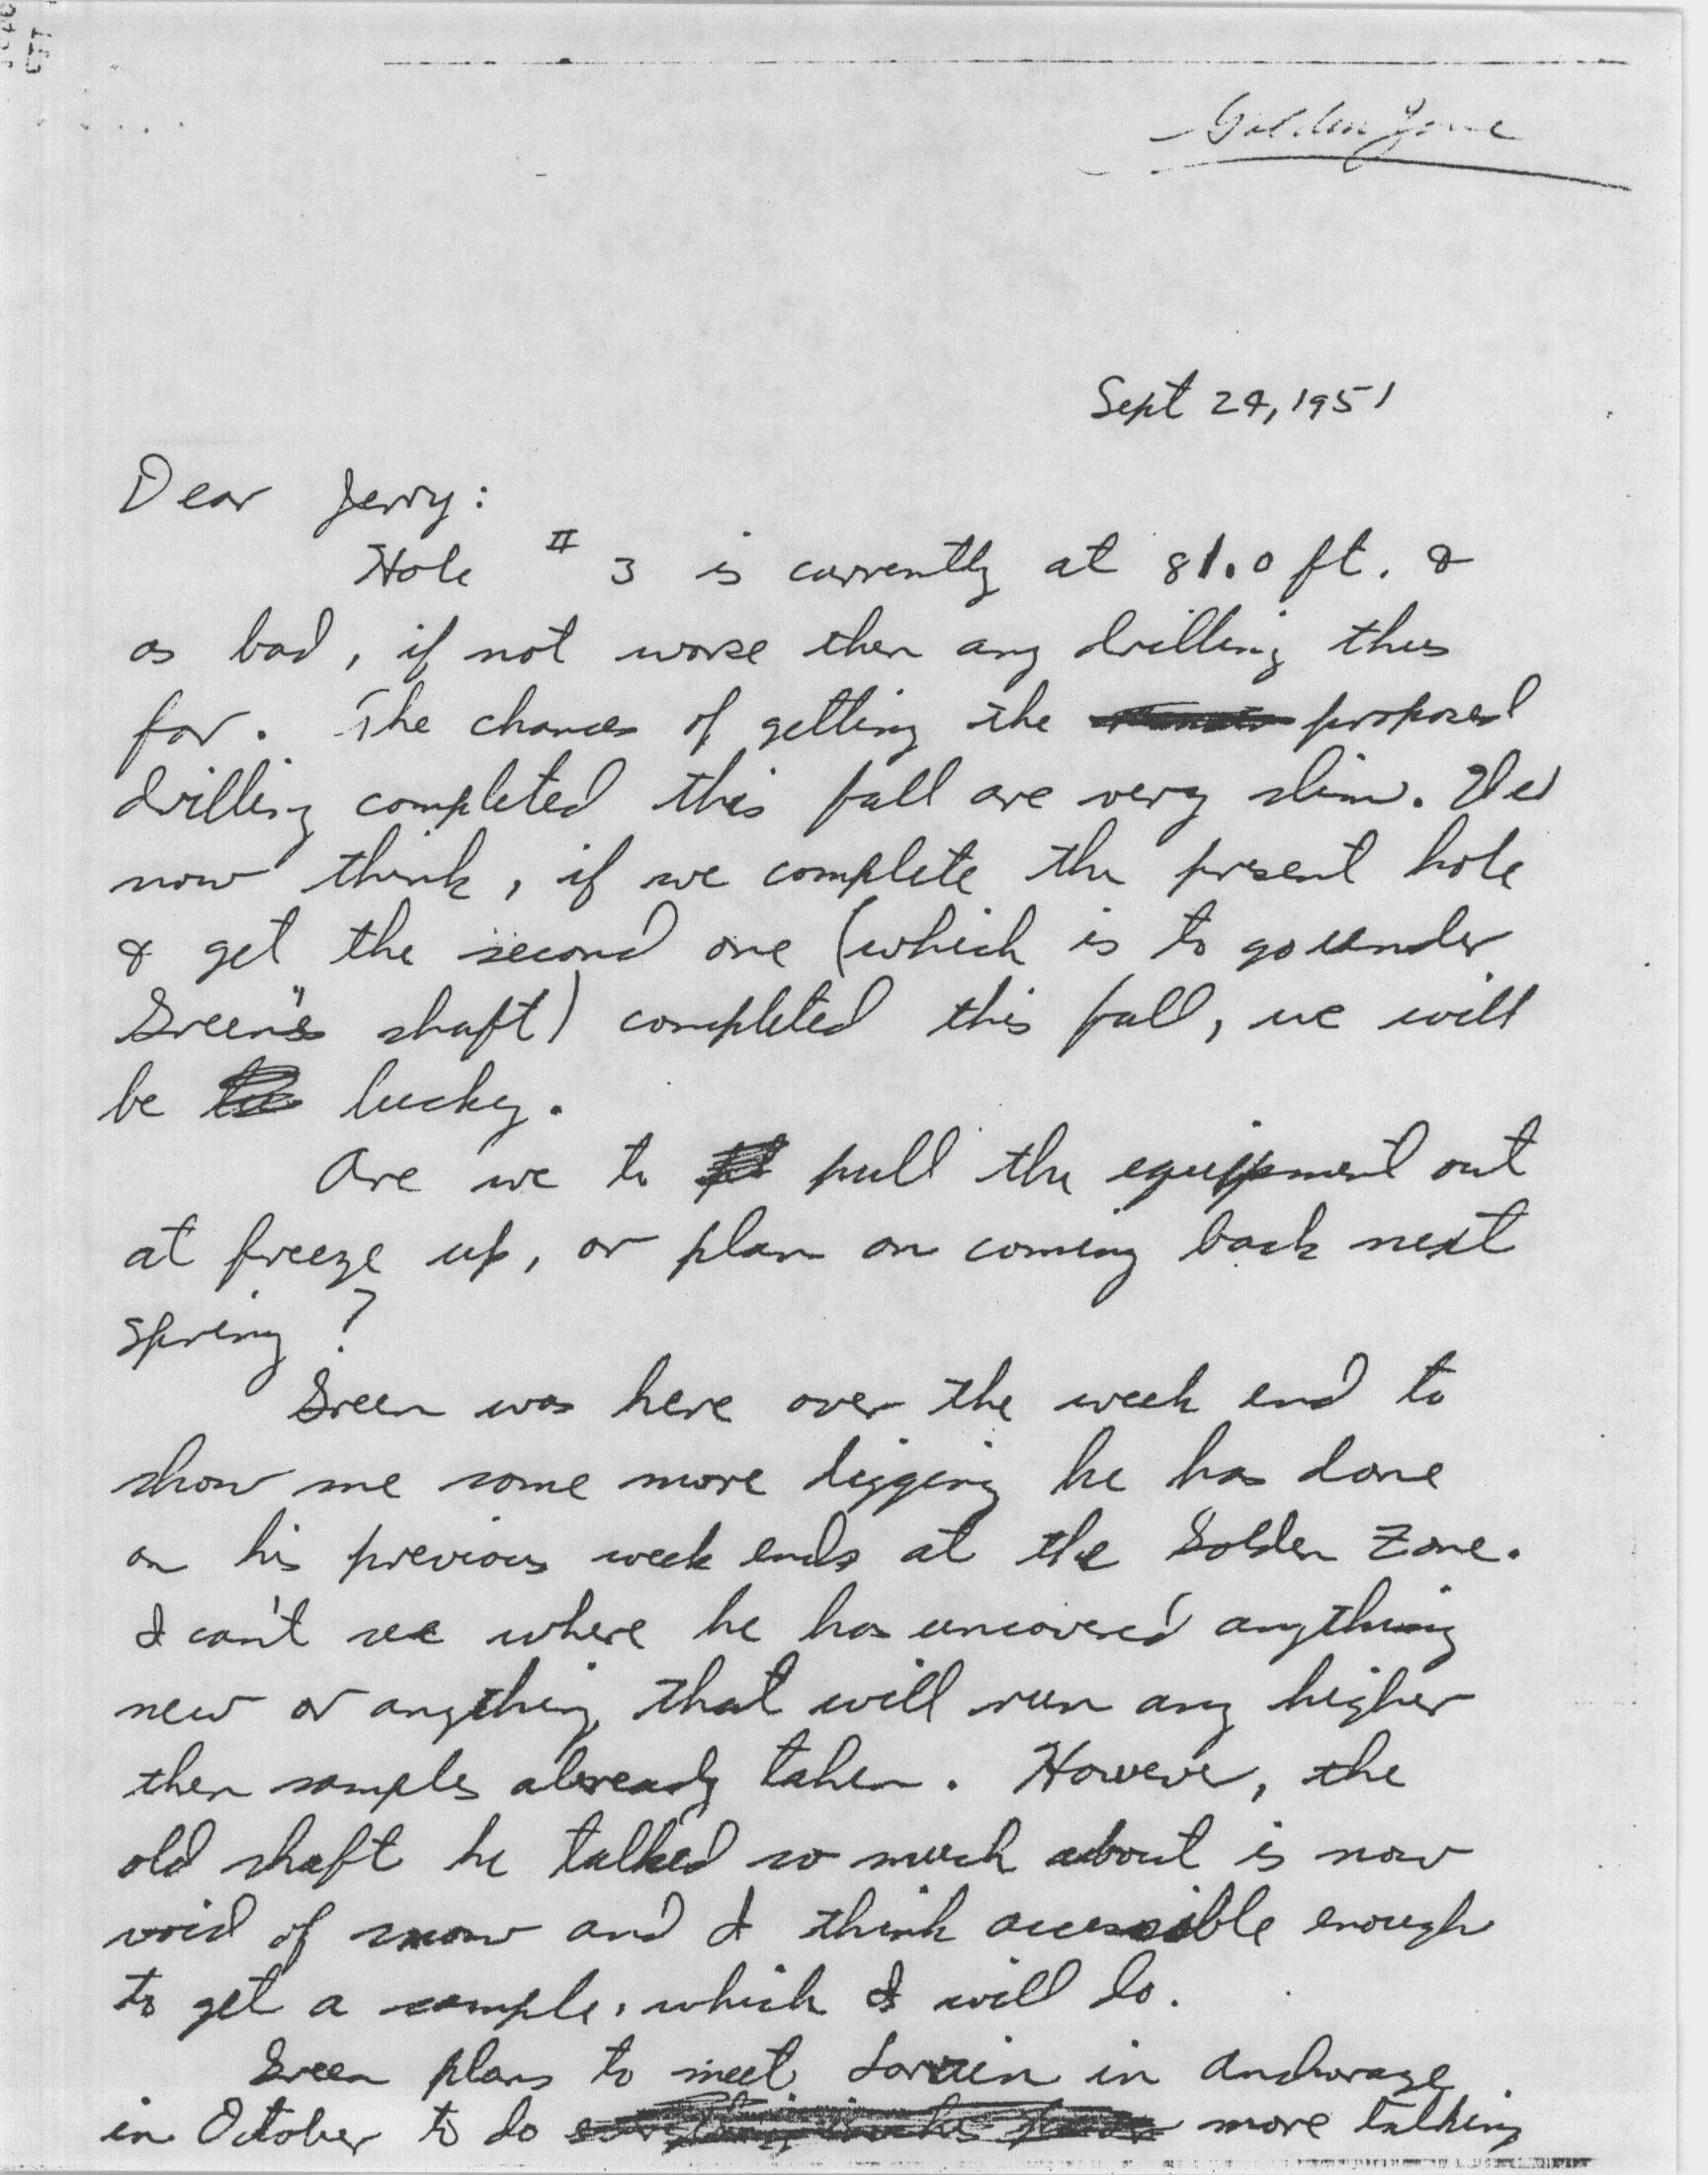 Golden Zone
Sept 24, 1951
Dear Jerry:
Hole # 3 is currently at 81.0 ft. &
as bad, if not worse then any drilling thus
far. The chances of getting the proposed
drilling completed this fall are very slim. Ned
now think, if we complete the present hole
& get the second one (which is to go under
Green's shaft) completed this fall, we will
be lucky.
Are we to pull the equippment out
at freeze up, or plan on coming back next
spring?
Green was here over the week end to
show me some more digging he has done
on his previous week ends at the Golden Zone.
I can't see where he has uncovered anything
new or anything that will run any higher
then samples already taken. However, the
old shaft he talked so much about is now
void of snow and I think accessible enough
to get a sample, which I will do.
Green plans to meet Lorain in Anchorage
in October to do more talking